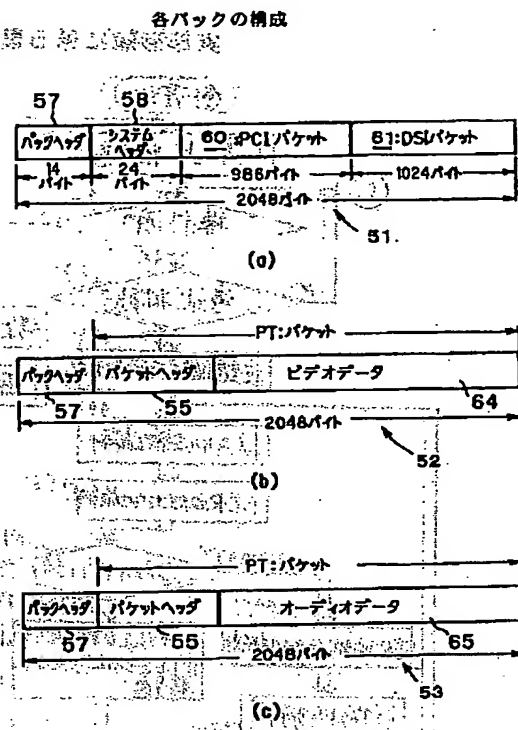 各パックの構成
57 58
パックヘッダ システムヘッダ 60:PCIパケット 61:DSIパケット
14バイト 24バイト 986バイト 1024バイト
2048バイト
51.
(a)
PT:パケット
パックヘッダ パケットヘッダ ビデオデータ
57 55 64
2048バイト
52
(b)
PT:パケット
パックヘッダ パケットヘッダ オーディオデータ
57 55 65
2048バイト
53
(c)